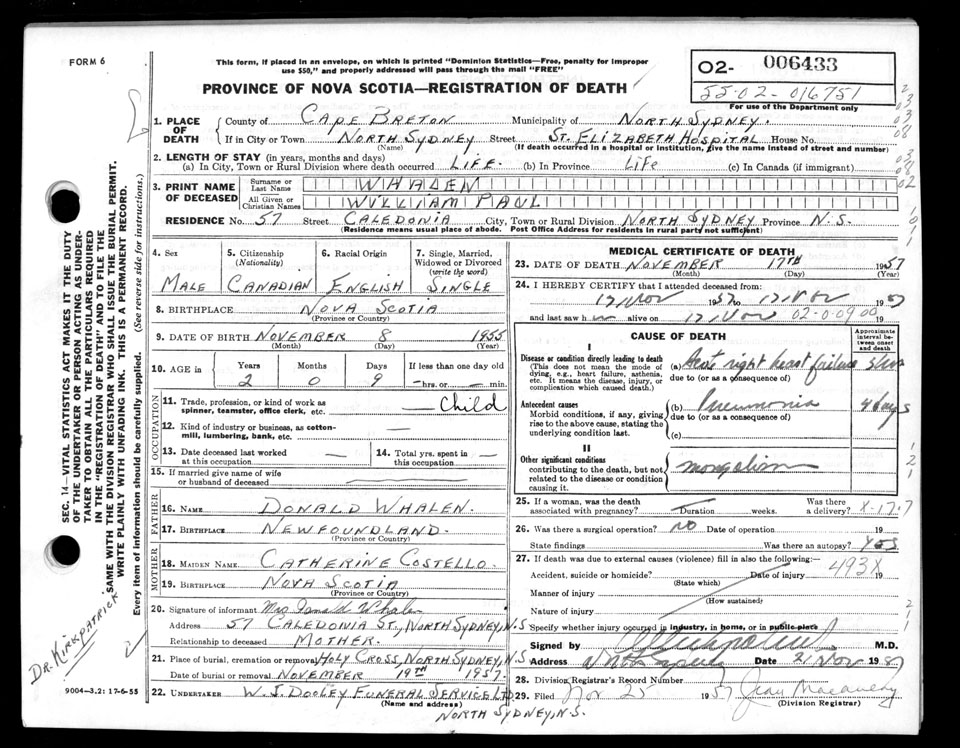 FORM 6
This form, if placed in an envelope, on which is printed "Dominion Statistics—Free, penalty for improper
use $50," and properly addressed will pass through the mail "FREE"
PROVINCE OF NOVA SCOTIA—REGISTRATION OF DEATH
02- 006433
55-02-016751
For use of the Department only
1. PLACE OF DEATH
County of CAPE BRETON Municipality of NORTH SYDNEY.
If in City or Town NORTH SYDNEY Street ST. ELIZABETH HOSPITAL House No.
(Name) (If death occurred in a hospital or institution, give the name instead of street and number)
2. LENGTH OF STAY (in years, months and days)
(a) In City, Town or Rural Division where death occurred LIFE. (b) In Province Life (c) In Canada (if immigrant)
3. PRINT NAME OF DECEASED
Surname or Last Name WHALEN
All Given or Christian Names WILLIAM PAUL
RESIDENCE No. 57 Street CALEDONIA City, Town or Rural Division NORTH SYDNEY Province N.S.
(Residence means usual place of abode. Post Office Address for residents in rural parts not sufficient)
4. Sex MALE
5. Citizenship (Nationality) CANADIAN
6. Racial Origin ENGLISH
7. Single, Married, Widowed or Divorced (write the word) SINGLE
8. BIRTHPLACE NOVA SCOTIA
(Province or Country)
9. DATE OF BIRTH NOVEMBER 8 1955
(Month) (Day) (Year)
10. AGE in Years 2 Months 0 Days 9 If less than one day old — hrs. or — min.
OCCUPATION
11. Trade, profession, or kind of work as spinner, teamster, office clerk, etc. — Child
12. Kind of industry or business, as cotton-mill, lumbering, bank, etc. —
13. Date deceased last worked at this occupation —
14. Total yrs. spent in this occupation —
15. If married give name of wife or husband of deceased —
FATHER
16. NAME DONALD WHALEN.
17. BIRTHPLACE NEWFOUNDLAND.
(Province or Country)
MOTHER
18. MAIDEN NAME. CATHERINE COSTELLO.
19. BIRTHPLACE NOVA SCOTIA
(Province or Country)
20. Signature of informant Mrs Donald Whalen
Address 57 CALEDONIA ST., NORTH SYDNEY, N.S
Relationship to deceased MOTHER.
21. Place of burial, cremation or removal HOLY CROSS, NORTH SYDNEY, N.S
Date of burial or removal NOVEMBER 19TH 1957.
22. UNDERTAKER W. J. DOOLEY FUNERAL SERVICE LTD
(Name and address)
NORTH SYDNEY, N.S.
MEDICAL CERTIFICATE OF DEATH
23. DATE OF DEATH NOVEMBER 17TH 1957
(Month) (Day) (Year)
24. I HEREBY CERTIFY that I attended deceased from:
17, Nov 1957 to 17, Nov 1957
and last saw h alive on 17, Nov 02-0-09 00 19
CAUSE OF DEATH
Approximate interval between onset and death
I
Disease or condition directly leading to death
(This does not mean the mode of dying, e.g., heart failure, asthenia, etc. It means the disease, injury, or complication which caused death.)
(a) Acute right heart failure
due to (or as a consequence of)
Antecedent causes
Morbid conditions, if any, giving rise to the above cause, stating the underlying condition last.
(b) Pneumonia 4 days
due to (or as a consequence of)
(c)
II
Other significant conditions
contributing to the death, but not related to the disease or condition causing it.
mongolism
25. If a woman, was the death associated with pregnancy? Duration weeks. Was there a delivery? X-17-7
26. Was there a surgical operation? NO Date of operation 19
State findings Was there an autopsy? YES
27. If death was due to external causes (violence) fill in also the following:—
493X
Accident, suicide or homicide? Date of injury 19
(State which)
Manner of injury
(How sustained)
Nature of injury
Specify whether injury occurred in industry, in home, or in public place
Signed by M.D.
Address Date 21 Nov 19
28. Division Registrar's Record Number
29. Filed Nov 25 1957 Jean
(Division Registrar)
SEC. 14—VITAL STATISTICS ACT MAKES IT THE DUTY
OF THE UNDERTAKER OR PERSON ACTING AS UNDER-
TAKER TO OBTAIN ALL THE PARTICULARS REQUIRED
IN THE "REGISTRATION OF DEATH" AND TO FILE THE
SAME WITH THE DIVISION REGISTRAR WHO SHALL ISSUE THE BURIAL PERMIT.
WRITE PLAINLY WITH UNFADING INK. THIS IS A PERMANENT RECORD.
Every item of information should be carefully supplied. (See reverse side for instructions.)
DR. KIRKPATRICK
9004—3.2: 17-6-55